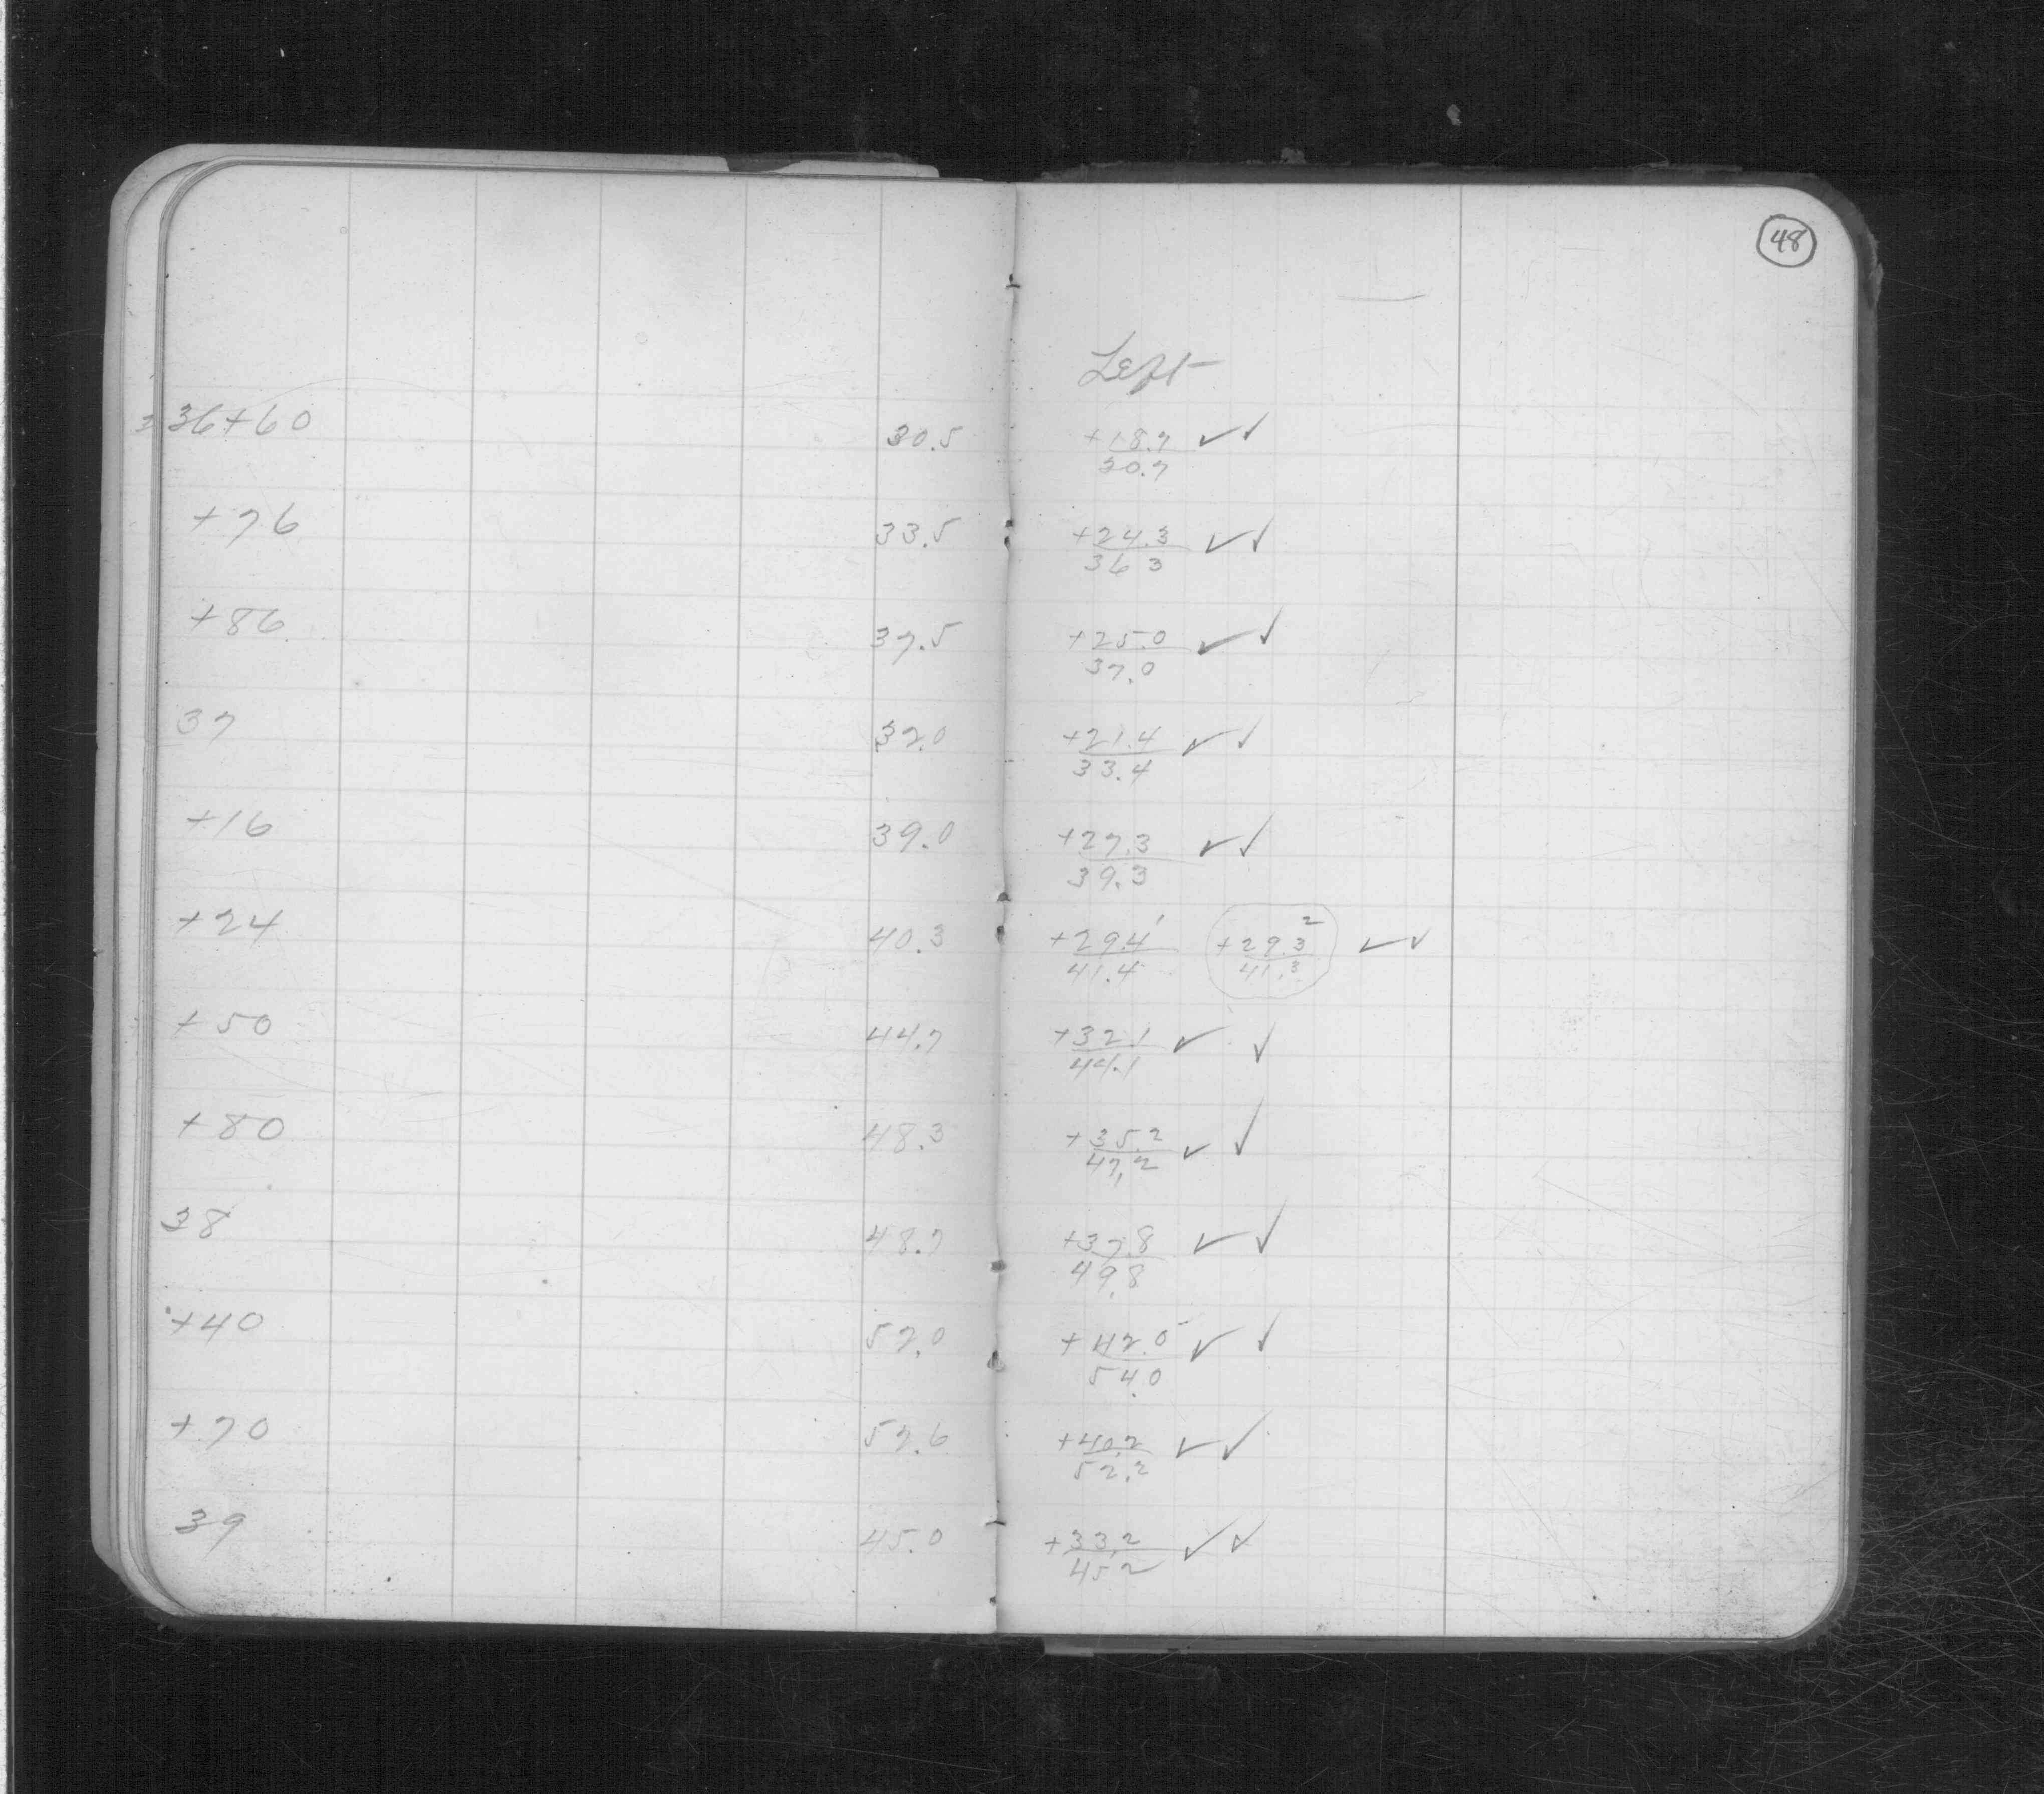 48
Left
36+60 30.5 +18.7 ✓✓
30.7
+76 33.5 +24.3 ✓✓
36 3
+86 37.5 +25.0 ✓✓
37.0
37 32.0 +21.4 ✓✓
33.4
+16 39.0 +27.3 ✓✓
39.3
+24 40.3 +29.4 1 +29.3 2 ✓✓
41.4 41.3
+50 44.7 +32.1 ✓ ✓
44.1
+80 48.3 +35.2 ✓ ✓
47.2
38 48.7 +37.8 ✓✓
49.8
+40 52.0 +42.0 ✓ ✓
54.0
+70 52.6 +40.2 ✓✓
52.2
39 45.0 +33.2 ✓✓
45.2